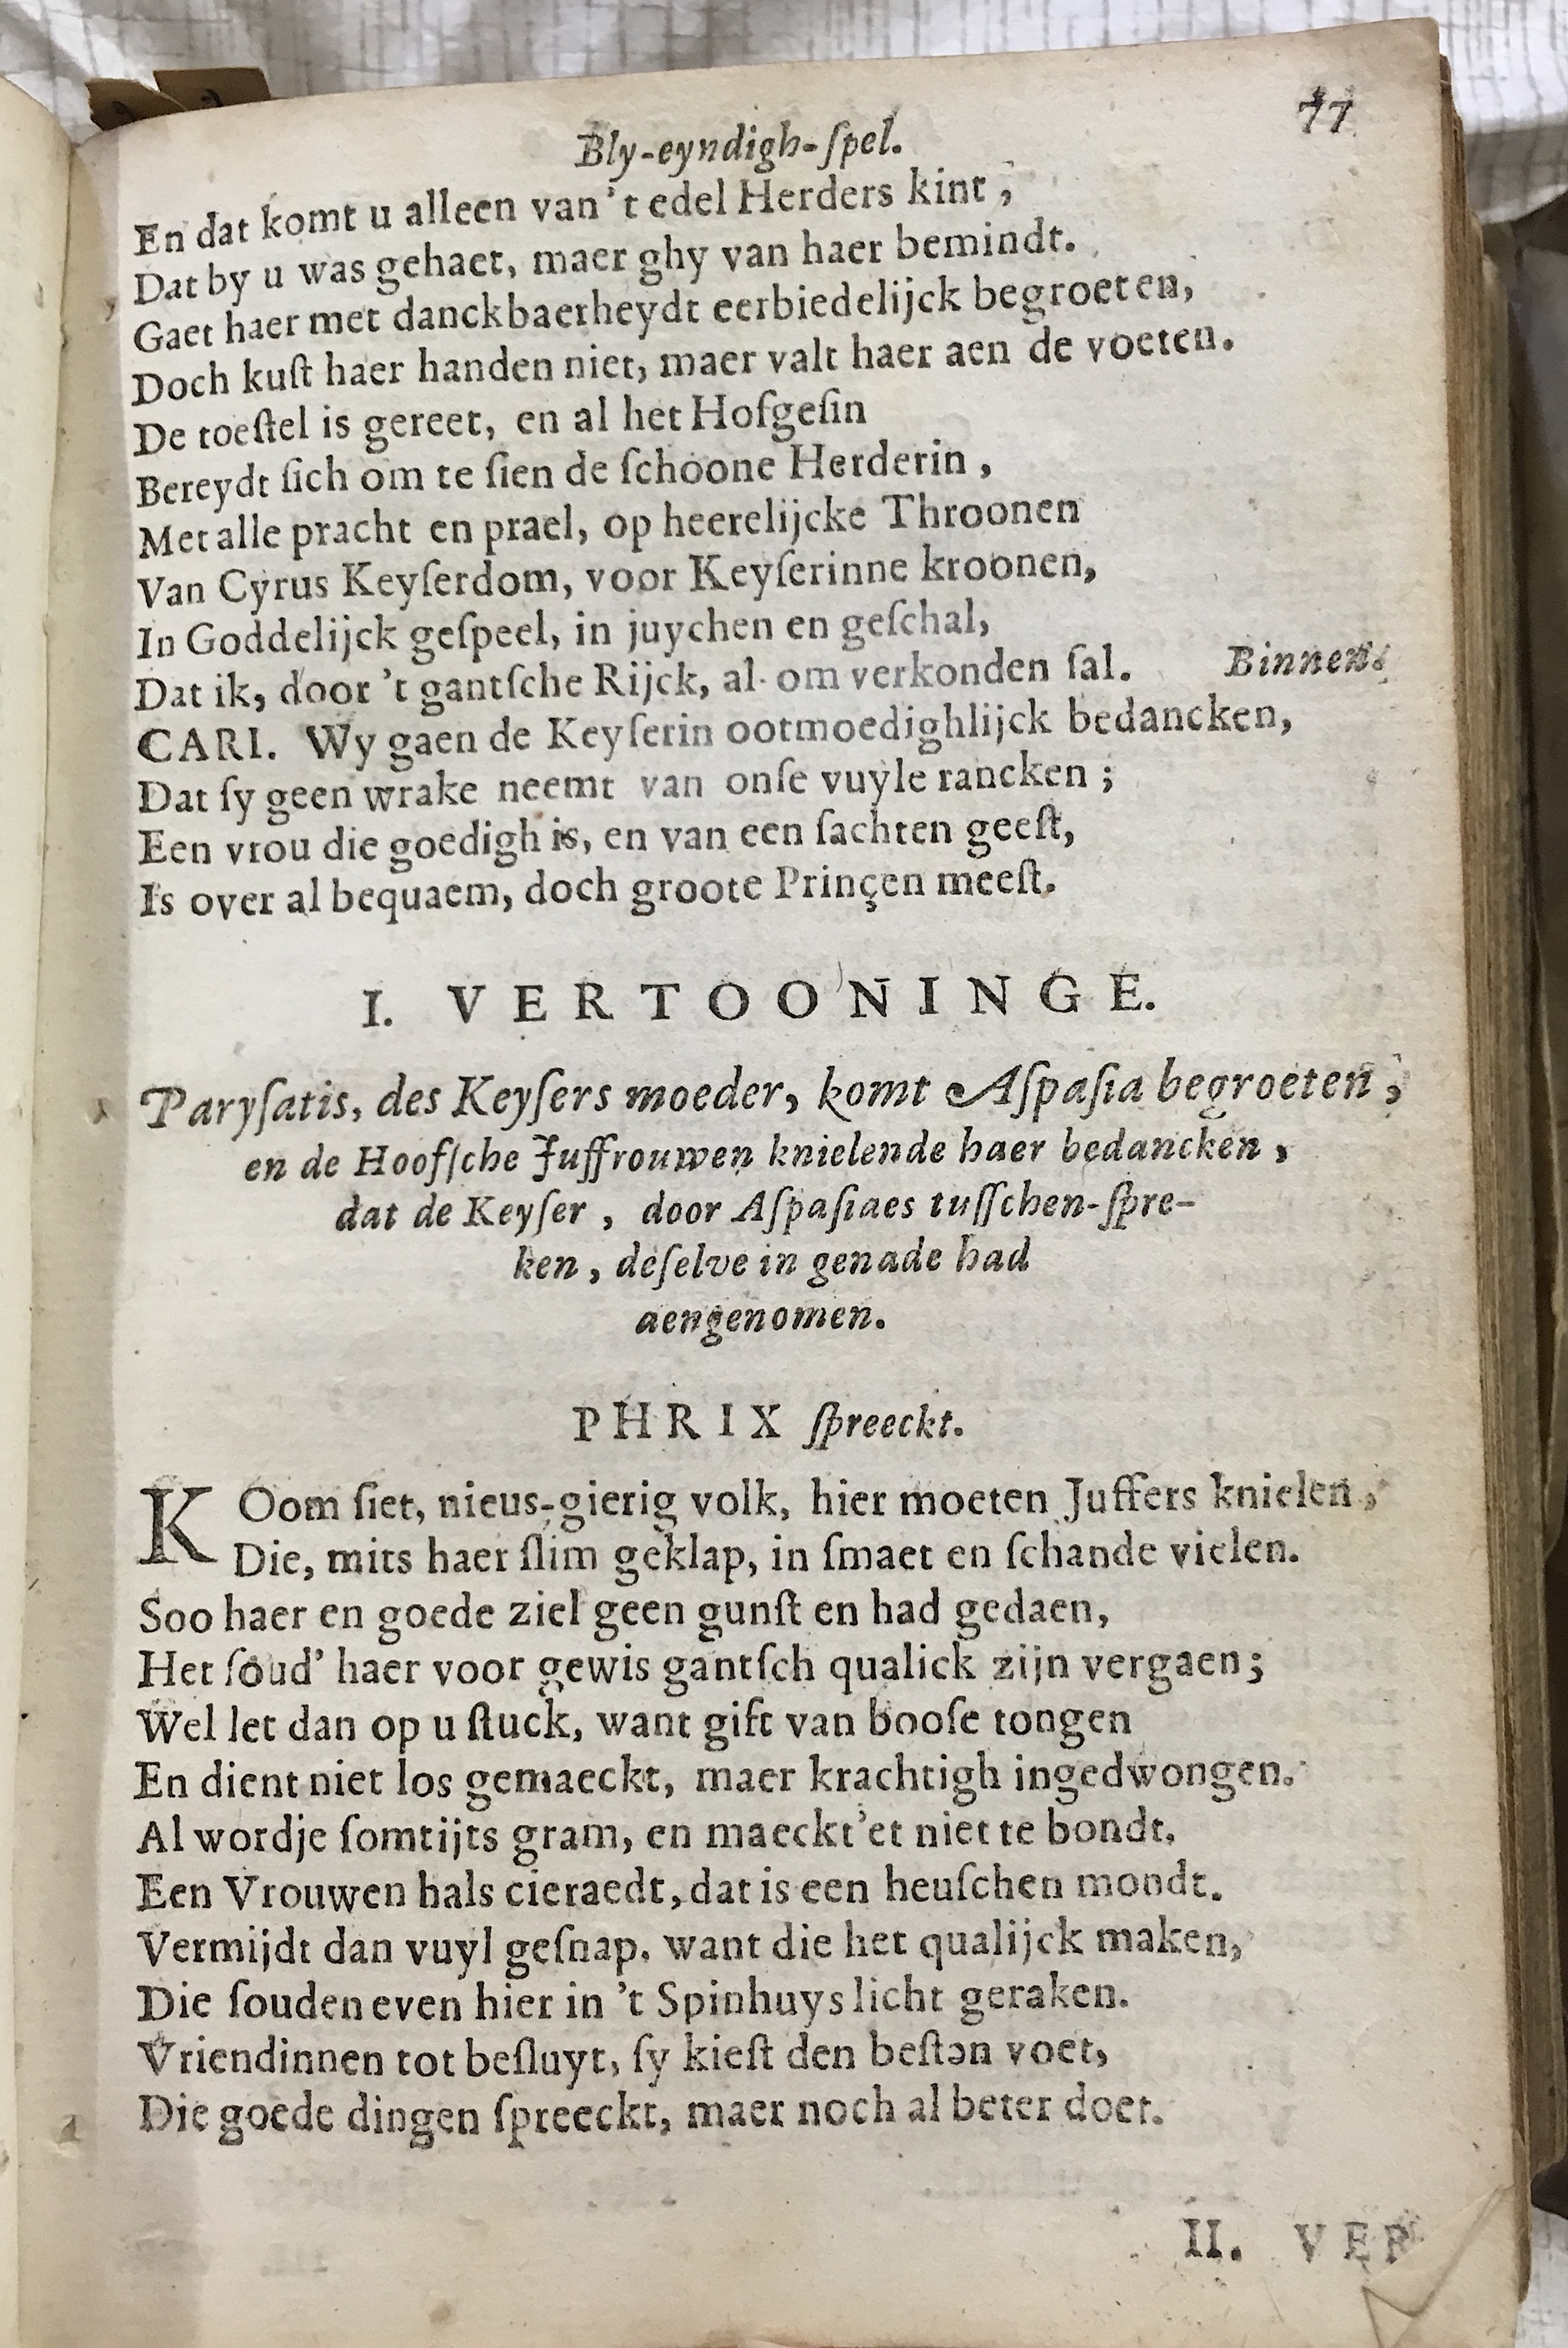 77
Bly-eyndigh-ſpel.
En dat komt u alleen van 't edel Herders kint,
Dat by u was gehaet, maer ghy van haer bemindt.
Gaet haer met danckbaerheydt eerbiedelijck begroeten,
Doch kuſt haer handen niet, maer valt haer aen de voeten.
De toeſtel is gereet, en al het Hofgeſin
Bereydt ſich om te ſien de ſchoone Herderin,
Met alle pracht en prael, op heerelijcke Throonen
Van Cyrus Keyſerdom, voor Keyſerinne kroonen,
In Goddelijck geſpeel, in juychen en geſchal,
Dat ik, door 't gantſche Rijck, al om verkonden ſal. Binnen.
CARI. Wy gaen de Keyſerin ootmoedighlijck bedancken,
Dat ſy geen wrake neemt van onſe vuyle rancken;
Een vrou die goedigh is, en van een ſachten geeſt,
Is over al bequaem, doch groote Prinçen meeſt.
I. VERTOONINGE.
Paryſatis, des Keyſers moeder, komt Aſpaſia begroeten,
en de Hoofſche Juffrouwen knielende haer bedancken,
dat de Keyſer, door Aſpaſiaes tuſſchen-ſpre-
ken, deſelve in genade had
aengenomen.
PHRIX ſpreeckt.
KOom ſiet, nieus-gierig volk, hier moeten Juffers knielen,
Die, mits haer ſlim geklap, in ſmaet en ſchande vielen.
Soo haer en goede ziel geen gunſt en had gedaen,
Het ſoud' haer voor gewis gantſch qualick zijn vergaen;
Wel let dan op u ſtuck, want gift van booſe tongen
En dient niet los gemaeckt, maer krachtigh ingedwongen.
Al wordje ſomtijts gram, en maeckt'et niet te bondt,
Een Vrouwen hals cieraedt, dat is een heuſchen mondt.
Vermijdt dan vuyl geſnap. want die het qualijck maken,
Die ſouden even hier in 't Spinhuys licht geraken.
Vriendinnen tot beſluyt, ſy kieſt den beſtən voet,
Die goede dingen ſpreeckt, maer noch al beter doet.
II. VER